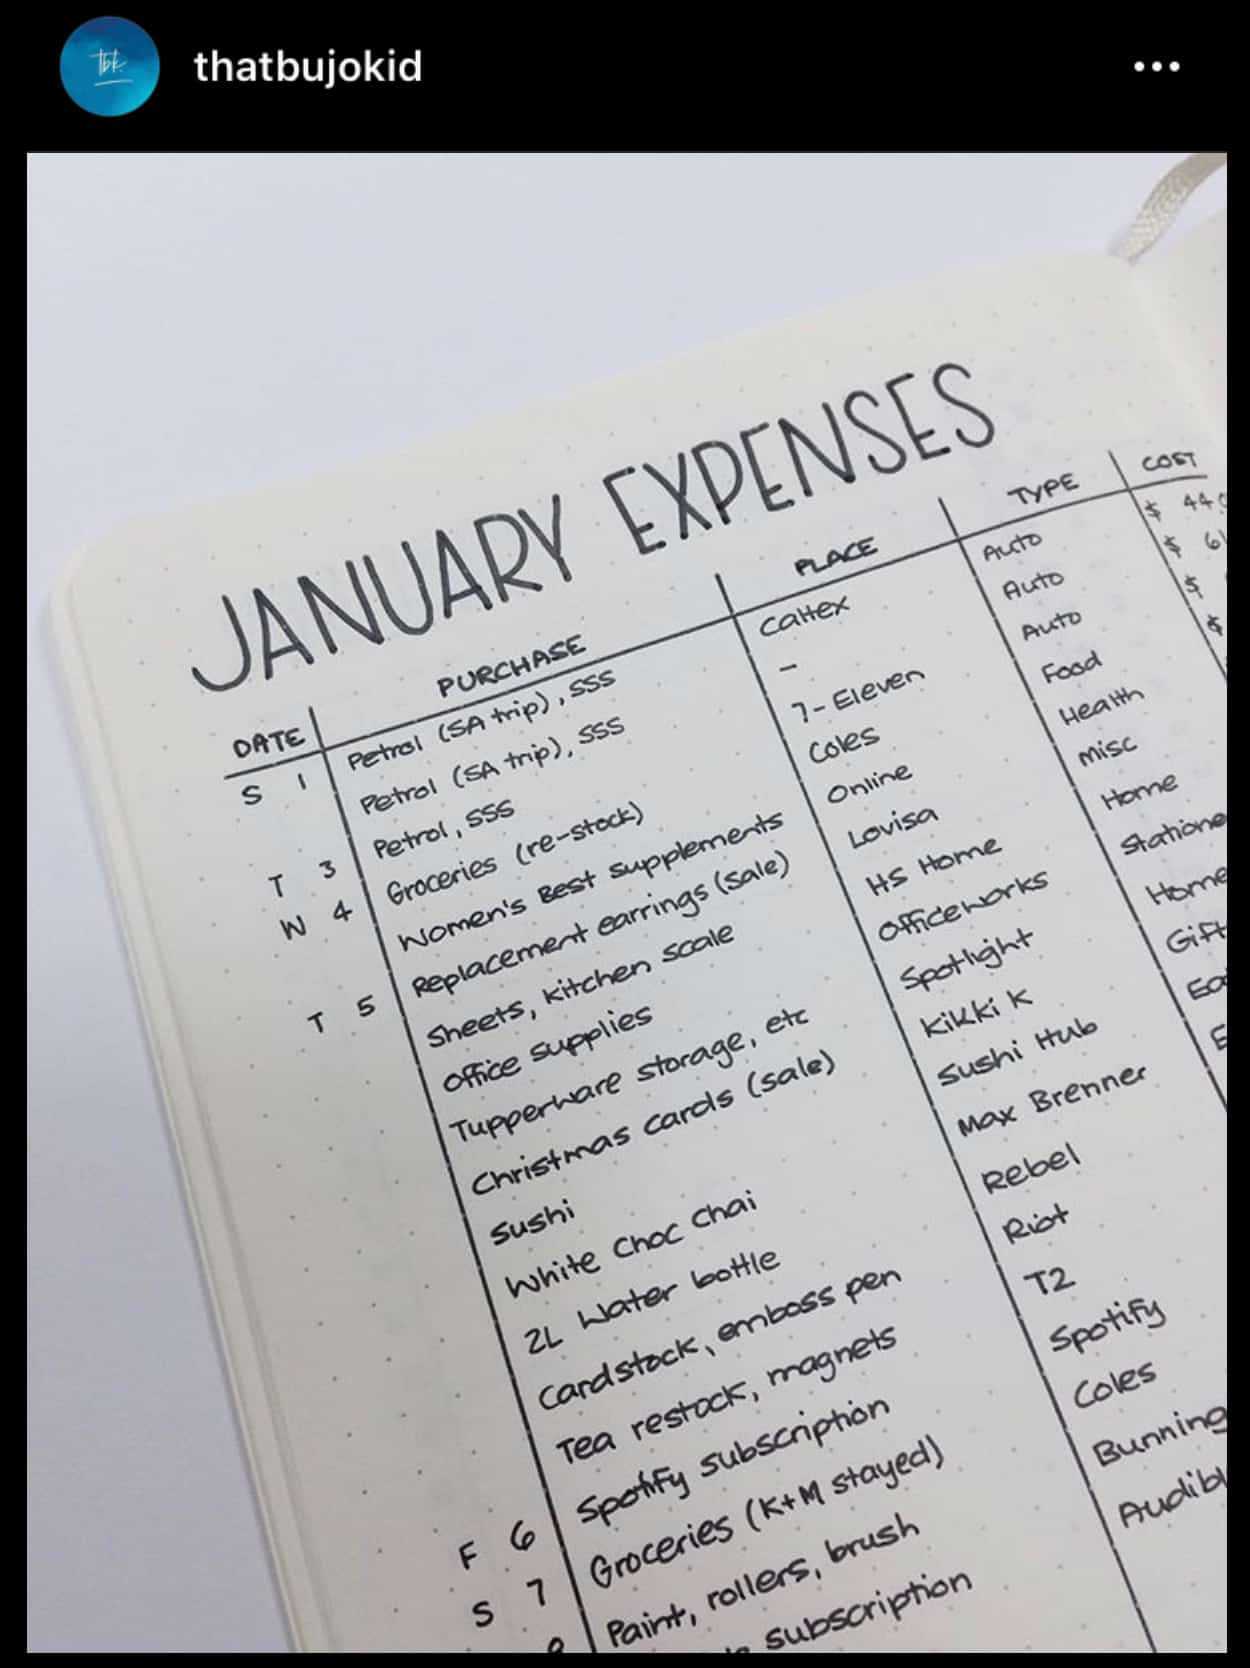 tbk.
thatbujokid
JANUARY EXPENSES
DATE PURCHASE PLACE TYPE COST
S 1 Petrol (SA trip), SSS Caltex Auto $ 44.
Petrol (SA trip), SSS – Auto $ 61
T 3 Petrol, SSS 7-Eleven Auto $
W 4 Groceries (re-stock) Coles Food $
Women's Best supplements Online Health
T 5 Replacement earrings (sale) Lovisa Misc
Sheets, kitchen scale HS Home Home
Office supplies Officeworks Statione
Tupperware storage, etc Spotlight Home
Christmas cards (sale) Kikki K Gift
Sushi Sushi Hub
White choc chai Max Brenner
2L Water bottle Rebel
Cardstock, emboss pen Riot
Tea restock, magnets T2
F 6 Spotify subscription Spotify
S 7 Groceries (K+M stayed) Coles
Paint, rollers, brush Bunning
subscription Audibl